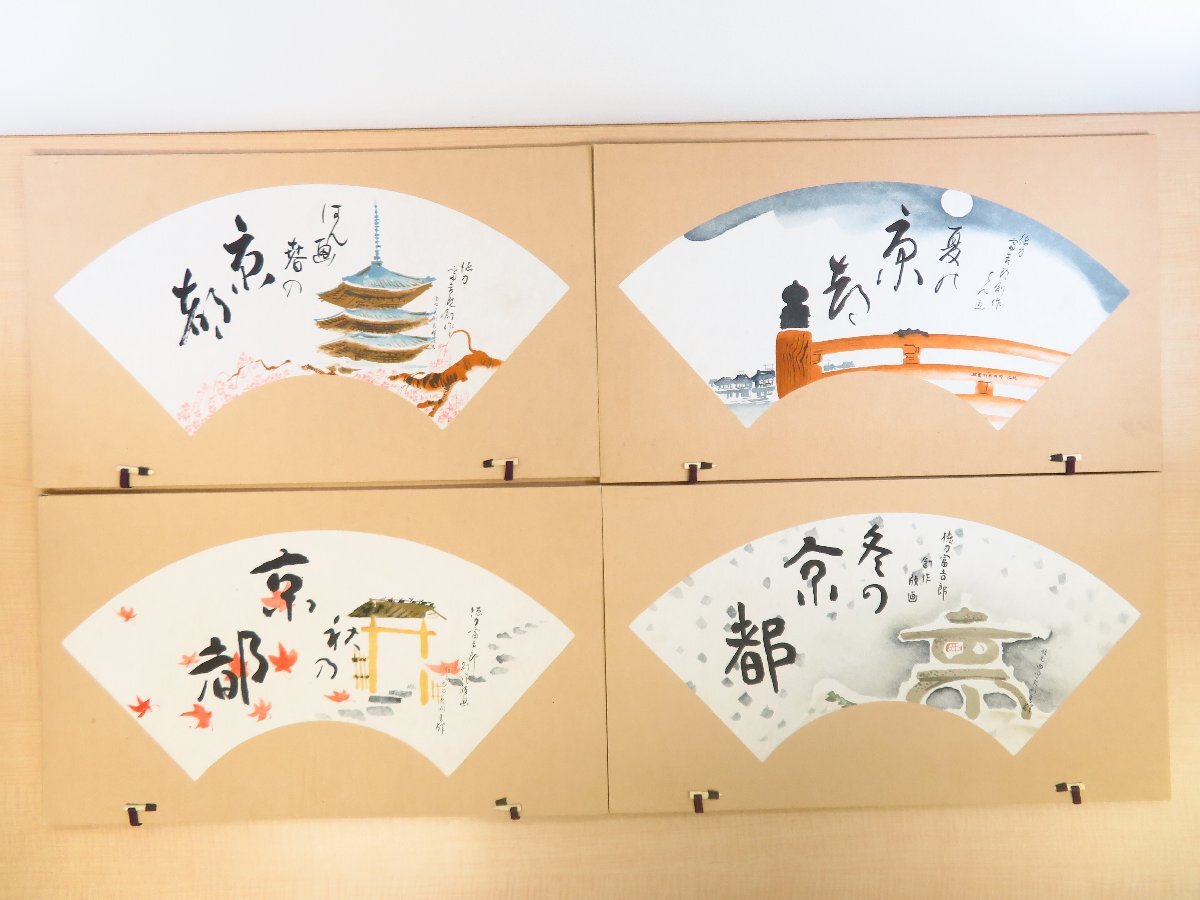 ほん画
春の
京
都
徳力
富吉郎創作
夏の
京
都
徳力
富吉郎創作
はん画
京
都
秋の
徳力富吉郎
創作版画
冬の
京
都
徳力富吉郎
創作
版画